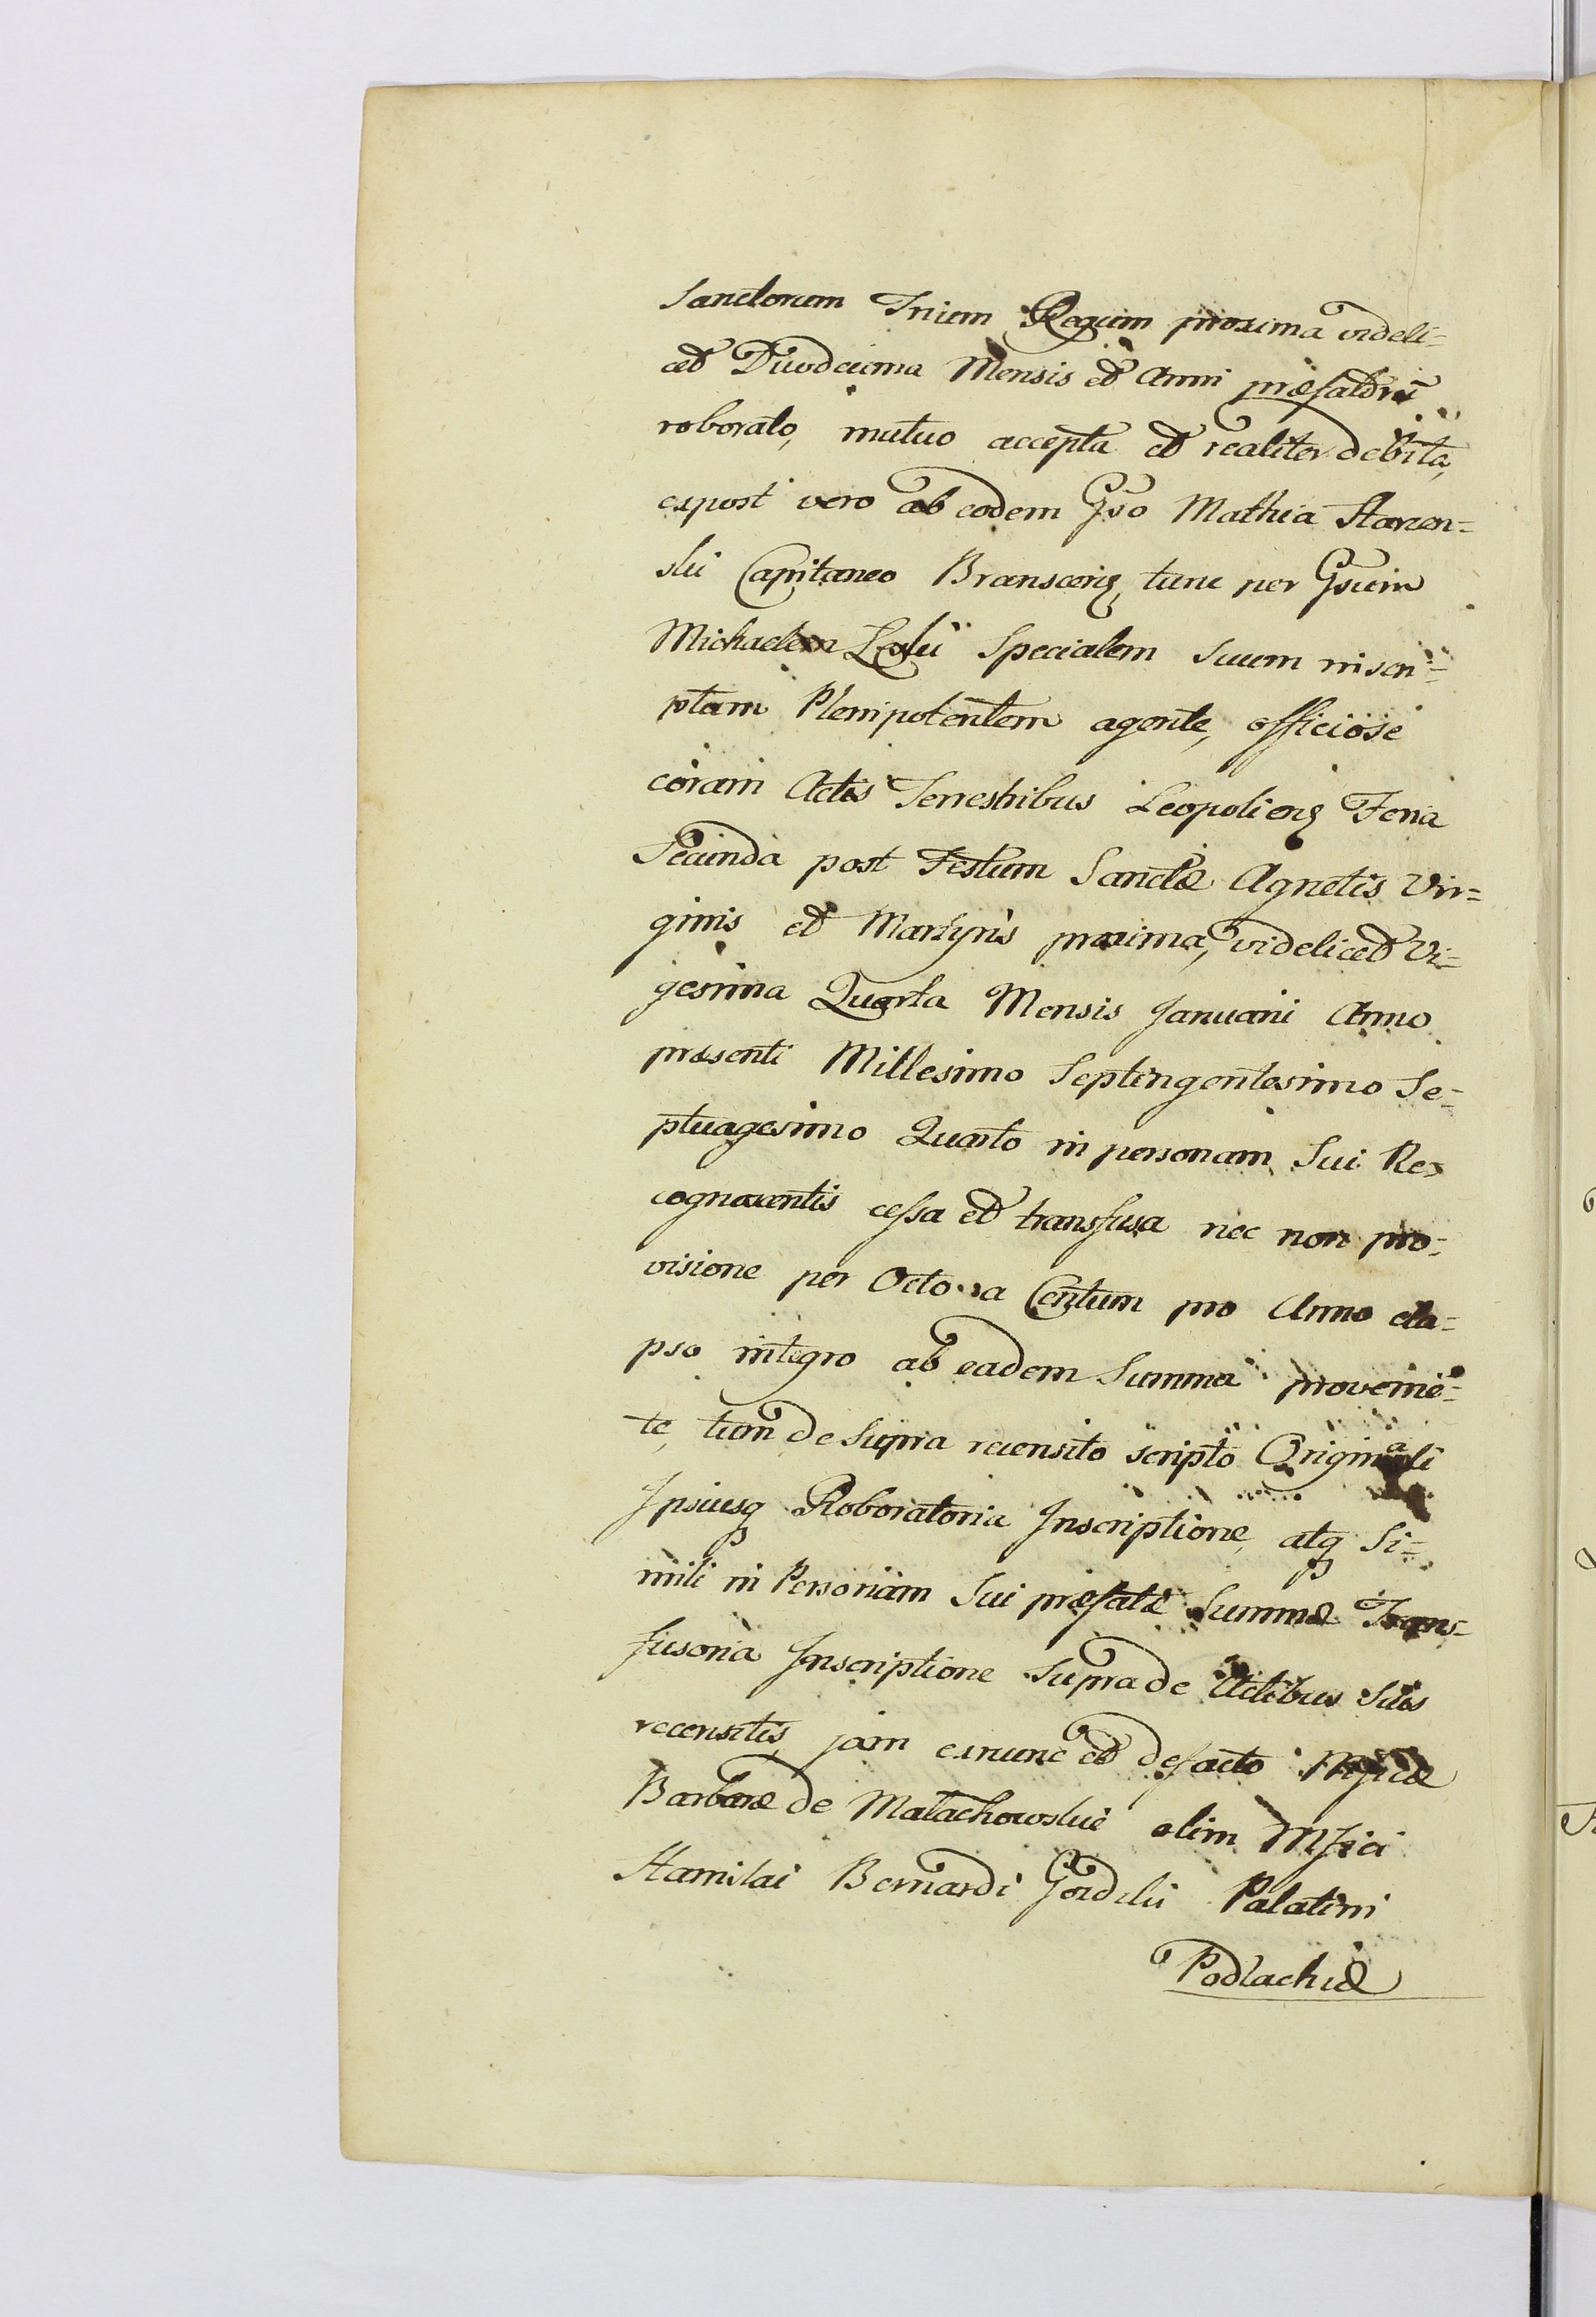 Sanctorum Trium Regum proxima videli=
cet Duodecima Mensis et Anni præfator̃
roborato, mutuo accepta et realiter debita,
expost vero ab eodem Gso Mathia Starzen=
ski Capitaneo Branscenȝ, tunc per Gsum
Michaelem Specialem suum inscri=
ptum Plenipotentem agente, officiose
coram Actis Terrestribus Leopolienȝ Feria
Secunda post Festum Sanctæ Agnetis Vir=
ginis et Martyris proxima, videlicet Vi=
gesima Quarta Mensis Januarii Anno
præsenti Millesimo Septingentesimo Se=
ptuagesimo Quarto in personam Sui Re=
cognoscentis cessa et transfusa nec non pro=
visione per Octo a Centum pro Anno ela=
pso integro ab eadem Summa provenië=
te, tum de supra recensito scripto Originali
Ipsiusq Roboratoria Inscriptione, atq Si=
mili in Personam Sui præfatæ Summæ Trans=
fusoria Inscriptione supra de Actibus Suis
recensitis, jam exnunc et defacto Mficæ
Barbaræ de Małachowskie olim Mfici
Stanislai Bernardi Gozdzki Palatini
Podlachiæ